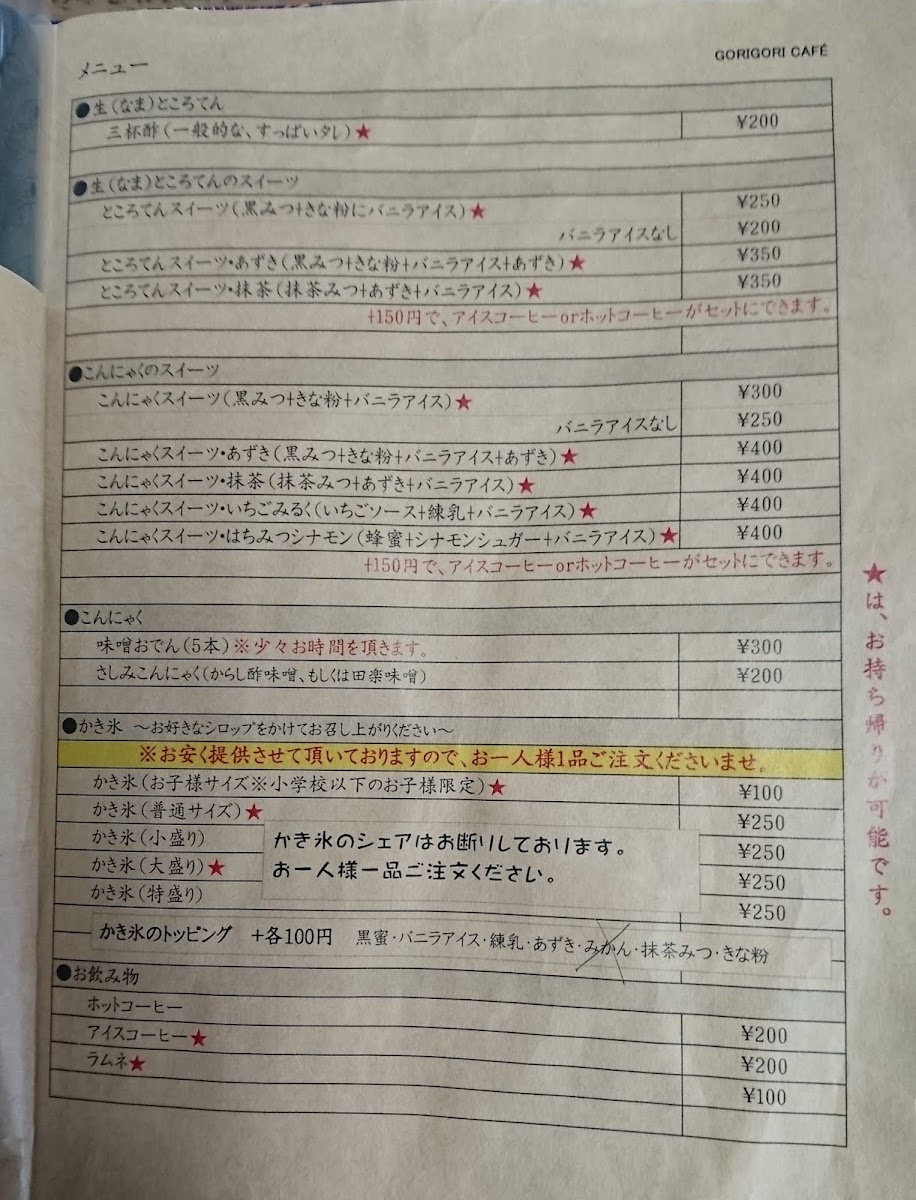 メニュー
GORIGORI CAFÉ
●生(なま)ところてん
三杯酢(一般的な、すっぱいタレ)★ ¥200
●生(なま)ところてんのスイーツ
ところてんスイーツ(黒みつ+きな粉にバニラアイス)★ ¥250
バニラアイスなし ¥200
ところてんスイーツ・あずき(黒みつ+きな粉+バニラアイス+あずき)★ ¥350
ところてんスイーツ・抹茶(抹茶みつ+あずき+バニラアイス)★ ¥350
+150円で、アイスコーヒーorホットコーヒーがセットにできます。
●こんにゃくのスイーツ
こんにゃくスイーツ(黒みつ+きな粉+バニラアイス)★ ¥300
バニラアイスなし ¥250
こんにゃくスイーツ・あずき(黒みつ+きな粉+バニラアイス+あずき)★ ¥400
こんにゃくスイーツ・抹茶(抹茶みつ+あずき+バニラアイス)★ ¥400
こんにゃくスイーツ・いちごみるく(いちごソース+練乳+バニラアイス)★ ¥400
こんにゃくスイーツ・はちみつシナモン(蜂蜜+シナモンシュガー+バニラアイス)★ ¥400
+150円で、アイスコーヒーorホットコーヒーがセットにできます。
●こんにゃく
味噌おでん(5本)※少々お時間を頂きます。 ¥300
さしみこんにゃく(からし酢味噌、もしくは田楽味噌) ¥200
●かき氷 ～お好きなシロップをかけてお召し上がりください～
※お安く提供させて頂いておりますので、お一人様1品ご注文くださいませ。
かき氷(お子様サイズ※小学校以下のお子様限定)★ ¥100
かき氷(普通サイズ)★ ¥250
かき氷(小盛り) ¥250
かき氷(大盛り)★ ¥250
かき氷(特盛り) ¥250
かき氷のシェアはお断りしております。
お一人様一品ご注文ください。
かき氷のトッピング +各100円 黒蜜・バニラアイス・練乳・あずき・みかん・抹茶みつ・きな粉
●お飲み物
ホットコーヒー ¥200
アイスコーヒー★ ¥200
ラムネ★ ¥100
★は、お持ち帰りが可能です。